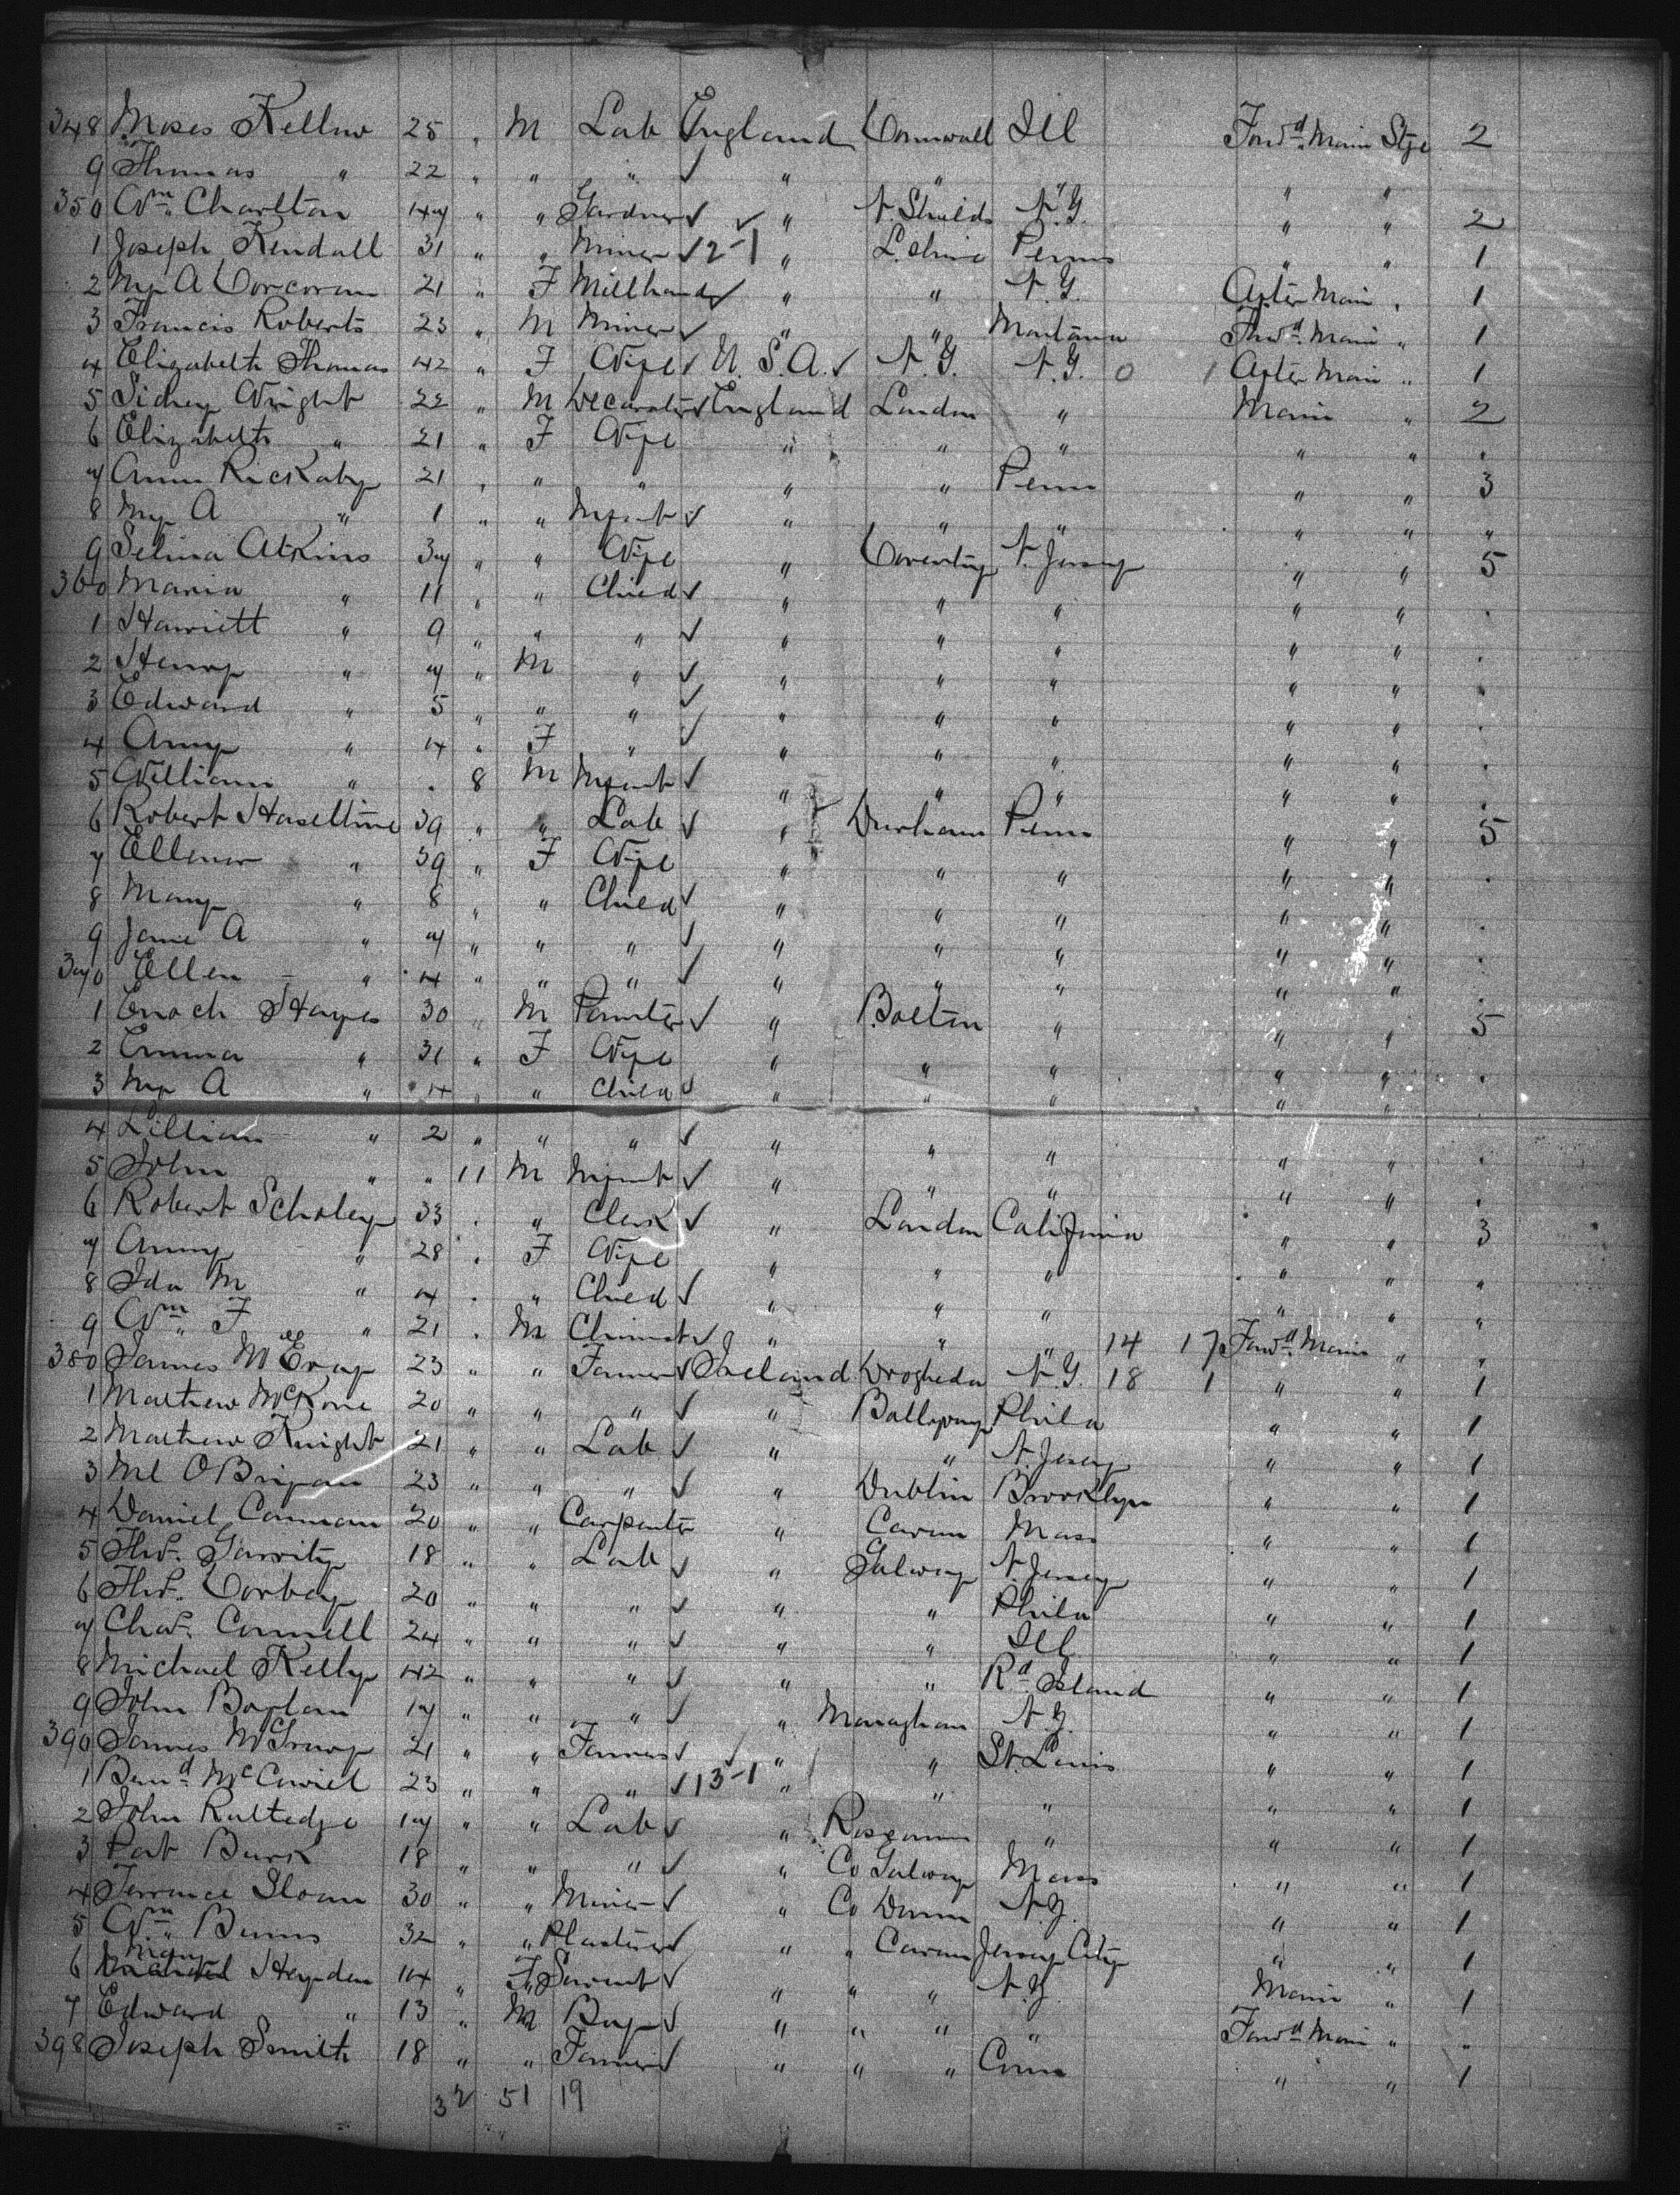 348 Moses Kellow 25 " M Lab England Cornwall Ill Forwd Main Stge 2
9 Thomas " 22 " " " ✓ " " " " "
350 Wm Charlton 47 " " Gardner ✓ ✓ " N. Shields N.Y. " " 2
1 Joseph Kendall 31 " " Miner ✓ 2-1 " L.shire Penns " " 1
2 My A Corcoran 21 " F Millhand ✓ " " N.Y. After Main " 1
3 Francis Roberts 23 " M Miner ✓ " " Montana Forwd Main " 1
4 Elizabeth Thomas 42 " F Wife ✓ U.S.A. ✓ N.Y. N.Y. 0 1 After Main " 1
5 Sidney Wright 22 " M Decorator ✓ England London " Main " 2
6 Elizabeth " 21 " F Wife " " " " " "
7 Ann Rickaby 21 " " " " " Penn " " 3
8 My A " 1 " " Infant ✓ " " " " " "
9 Selina Atkins 37 " " Wife " Coventry N. Jersey " " 5
360 Maria " 11 " " Child ✓ " " " " " "
1 Harriett " 9 " " " ✓ " " " " " "
2 Henry " 7 " M " ✓ " " " " " "
3 Edward " 5 " " " ✓ " " " " " "
4 Amy " 4 " F " ✓ " " " " " "
5 William " " 8 M Infant ✓ " " " " " "
6 Robert Haseltine 39 " " Lab ✓ " Durham Penn " " 5
7 Ellenor " 39 " F Wife " " " " " "
8 Mary " 8 " " Child ✓ " " " " " "
9 Jane A " 7 " " " ✓ " " " " " "
370 Ellen " 4 " " " ✓ " " " " " "
1 Enoch Hayes 30 " M Painter ✓ " Bolton " " " 5
2 Emma " 31 " F Wife " " " " " "
3 My A " 4 " " Child ✓ " " " " " "
4 Lillian " 2 " " " ✓ " " " " " "
5 John " " 11 M Infant ✓ " " " " " "
6 Robert Scholey 33 " " Clerk ✓ " London California " " 3
7 Amy " 28 " F Wife " " " " " "
8 Ida M " 4 " " Child ✓ " " " " " "
9 Wm F " 21 " M Chimist ✓ " " " 14 17 Forwd Main " "
380 James McEvoy 23 " " Farmer ✓ Ireland Drogheda N.Y. 18 1 " " 1
1 Mathew McKone 20 " " " ✓ " Phila " " 1
2 Mathew Knight 21 " " Lab ✓ " " N. Jersey " " 1
3 Ml O'Bryan 23 " " " ✓ " Dublin Brooklyn " " 1
4 Daniel Cannan 20 " " Carpenter " Cavan Mass " " 1
5 Thos. Garrity 18 " " Lab ✓ " Galway N. Jersey " " 1
6 Thos. Corbey 20 " " " ✓ " " Phila " " 1
7 Chas. Connell 24 " " " ✓ " " Ill " " 1
8 Michael Kelly 42 " " " ✓ " " Rd Island " " 1
9 John Boylan 17 " " " ✓ " Monaghan N.Y. " " 1
390 James 21 " " Farmer ✓ ✓ " " St. Louis " " 1
1 Bernd 23 " " " ✓ 13-1 " " " " " 1
2 John Rutledge 17 " " Lab ✓ " " " " 1
3 Pat Burk 18 " " " ✓ " Co Galway Mass " " 1
4 Terrance Sloan 30 " " Miner ✓ " Co Down N.Y. " " 1
5 Wm Burns 32 " " Plasterer ✓ " " Cavan Jersey City " " 1
6 Mary Heyden 14 " F Servant ✓ " " " N.Y. Main " 1
7 Edward " 13 " M Boy ✓ " " " " Forwd Main " "
398 Joseph Smith 18 " " Farmer ✓ " " " Conn " " 1
32 51 19